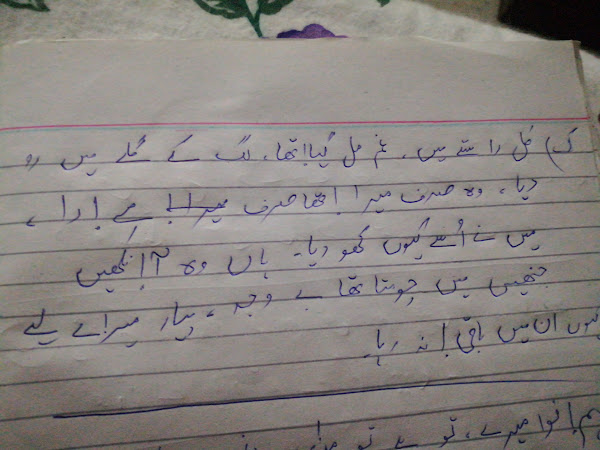 ک) کل راستے میں، غم مل گیا!تھا، لگ کے گلے میں رو
دیا، وہ صرف میرا !تھا صرف میرا
میں نے اُسے کیوں کھو دیا۔ ہاں وہ آ!نکھیں
جنھیں میں چومتا تھا بے وجہ، پیار میرے لیے
کیوں ان میں باقی! نہ رہا۔
ہم!نوا میرے، تو ہے تو